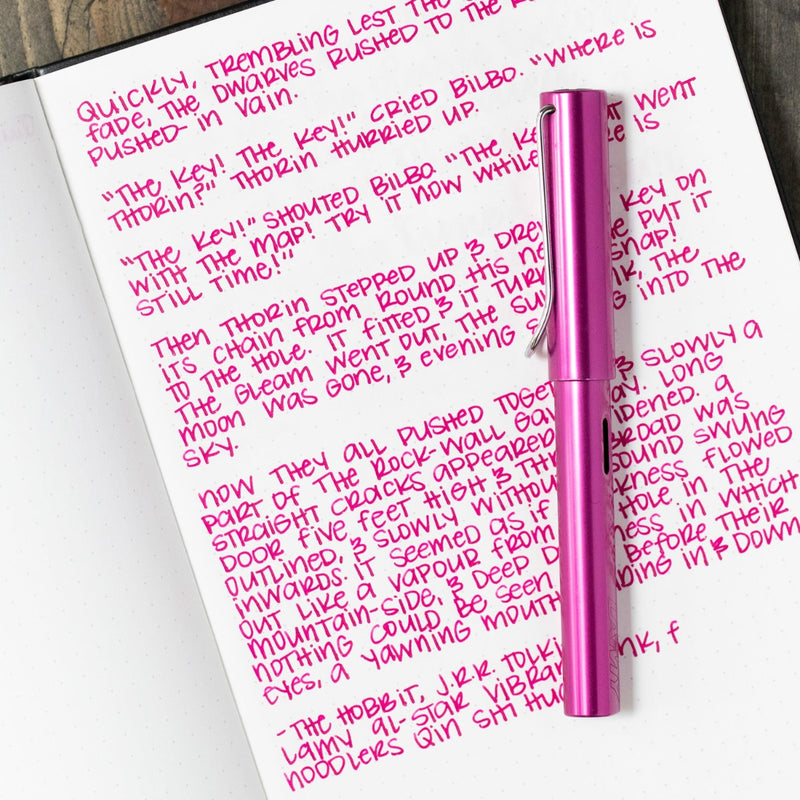 QUICKLY, TREMBLING LEST THE
FADE, THE DWARVES RUSHED TO THE
PUSHED- IN VAIN.
"THE KEY! THE KEY!" CRIED BILBO. "WHERE IS
THORIN?" THORIN HURRIED UP.
"THE KEY!" SHOUTED BILBO. "THE KE WENT
WITH THE MAP! TRY IT NOW WHILE IS
STILL TIME!"
THEN THORIN STEPPED UP & DREW KEY ON
ITS CHAIN FROM ROUND HIS NE PUT IT
TO THE HOLE. IT FITTED & IT TURN SNAP!
THE GLEAM WENT OUT, THE SUN NK, THE
MOON WAS GONE, & EVENING S G INTO THE
SKY.
NOW THEY ALL PUSHED TOGET & SLOWLY A
PART OF THE ROCK-WALL GAV AY. LONG
STRAIGHT CRACKS APPEARED IDENED. A
DOOR FIVE FEET HIGH & TH BROAD WAS
OUTLINED, & SLOWLY WITHOU SOUND SWUNG
INWARDS. IT SEEMED AS IF KNESS FLOWED
OUT LIKE A VAPOUR FROM HOLE IN THE
MOUNTAIN-SIDE, & DEEP D NESS IN WHICH
NOTHING COULD BE SEEN BEFORE THEIR
EYES, A YAWNING MOUTH DING IN & DOWN
-THE HOBBIT, J.R.R. TOLKI
LAMY AL-STAR VIBRAN NK, F
NOODLERS QIN SHI HUA